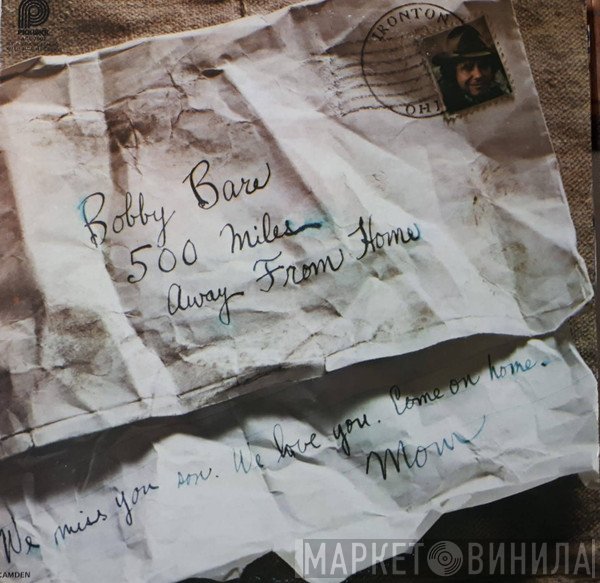 PICKWICK
IRONTON
OHI
Bobby Bare
500 Miles
Away From Home
We miss you son. We love you. Come on home.
Mom
CAMDEN
МАРКЕТ ВИНИЛА